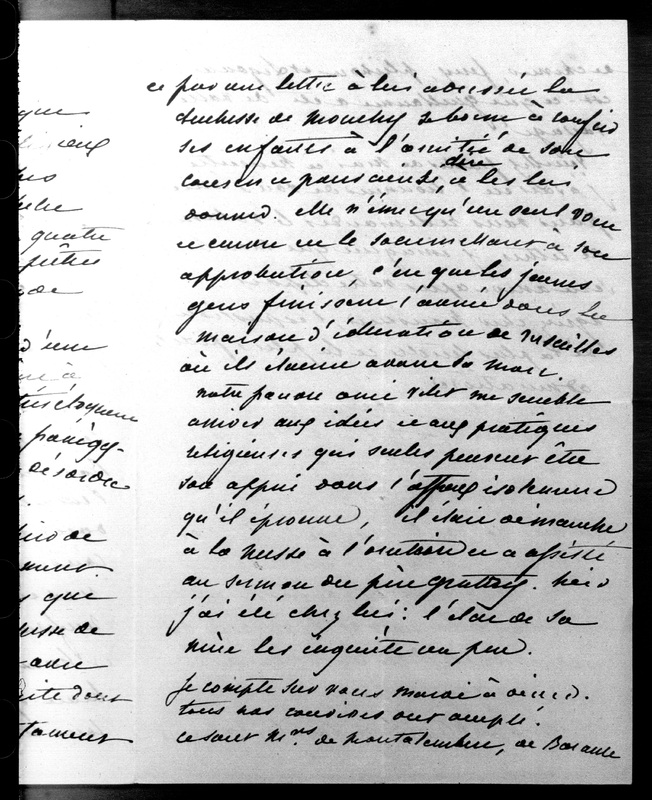 que
quatre
d'une
à
très éloquente
panégy-
désordre
de
que
de
dont
ce par une lettre à lui adressée la
duchesse de Mouchy se borne à confier
ses enfants à l'amitié de son
cousin et
donner. Elle n'émet qu'un seul vœu
encore en le soumettant à son
approbation, c'est que les jeunes
gens finissent l'année dans la
maison d'éducation de Versailles
où ils étaient avant la mort.
notre pauvre ami Vilet me semble
arriver aux idées et aux pratiques
religieuses qui seules peuvent être
son appui dans l'affreux isolement
qu'il éprouve, il était dimanche
à la messe à l'oratoire et a assisté
au sermon du père gratry. hier
j'ai été chez lui : l'état de sa
mère les inquiète un peu.
je compte sur vous mardi à dîner.
tous nos convives ont accepté.
ce sont Mrs de Montalembert, de Barante